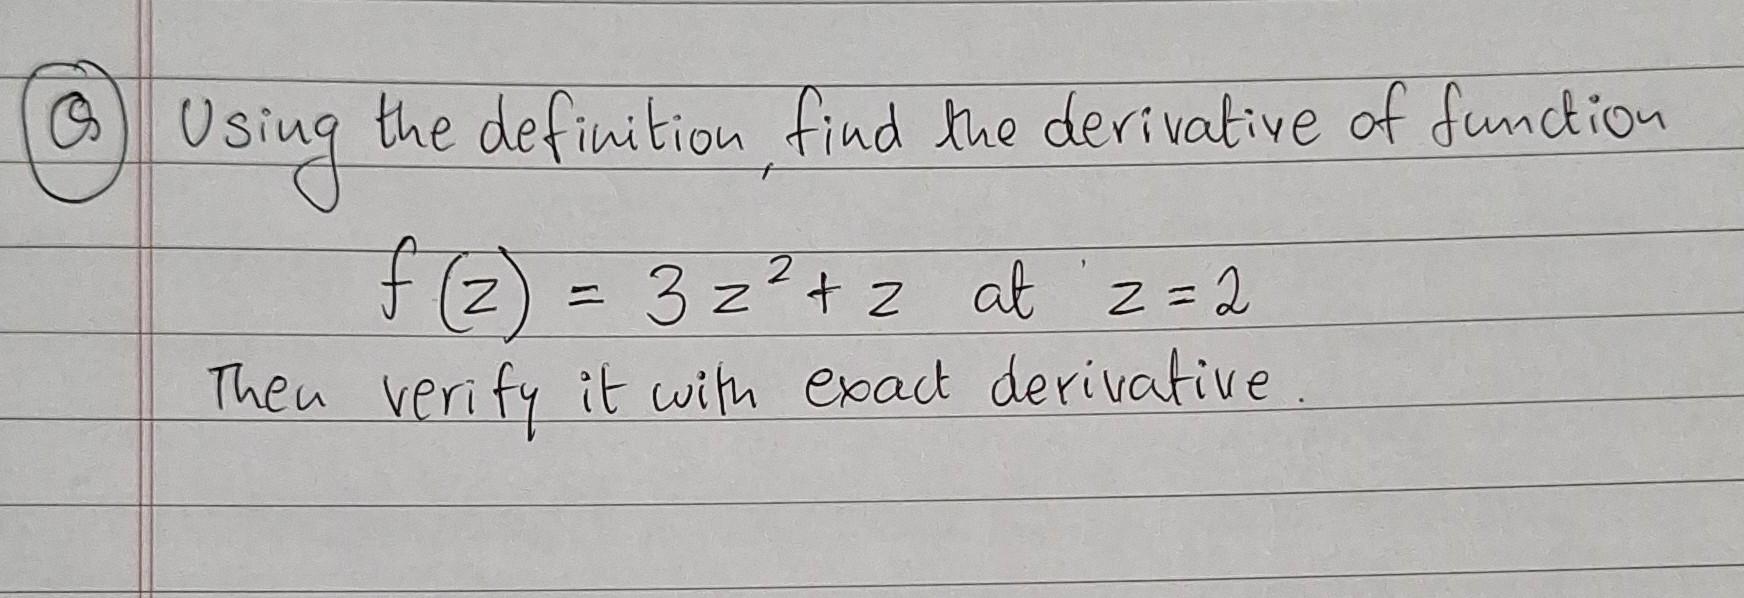 Q Using the definition, find the derivative of function
f(z) = 3z² + z at z = 2
Then verify it with exact derivative.